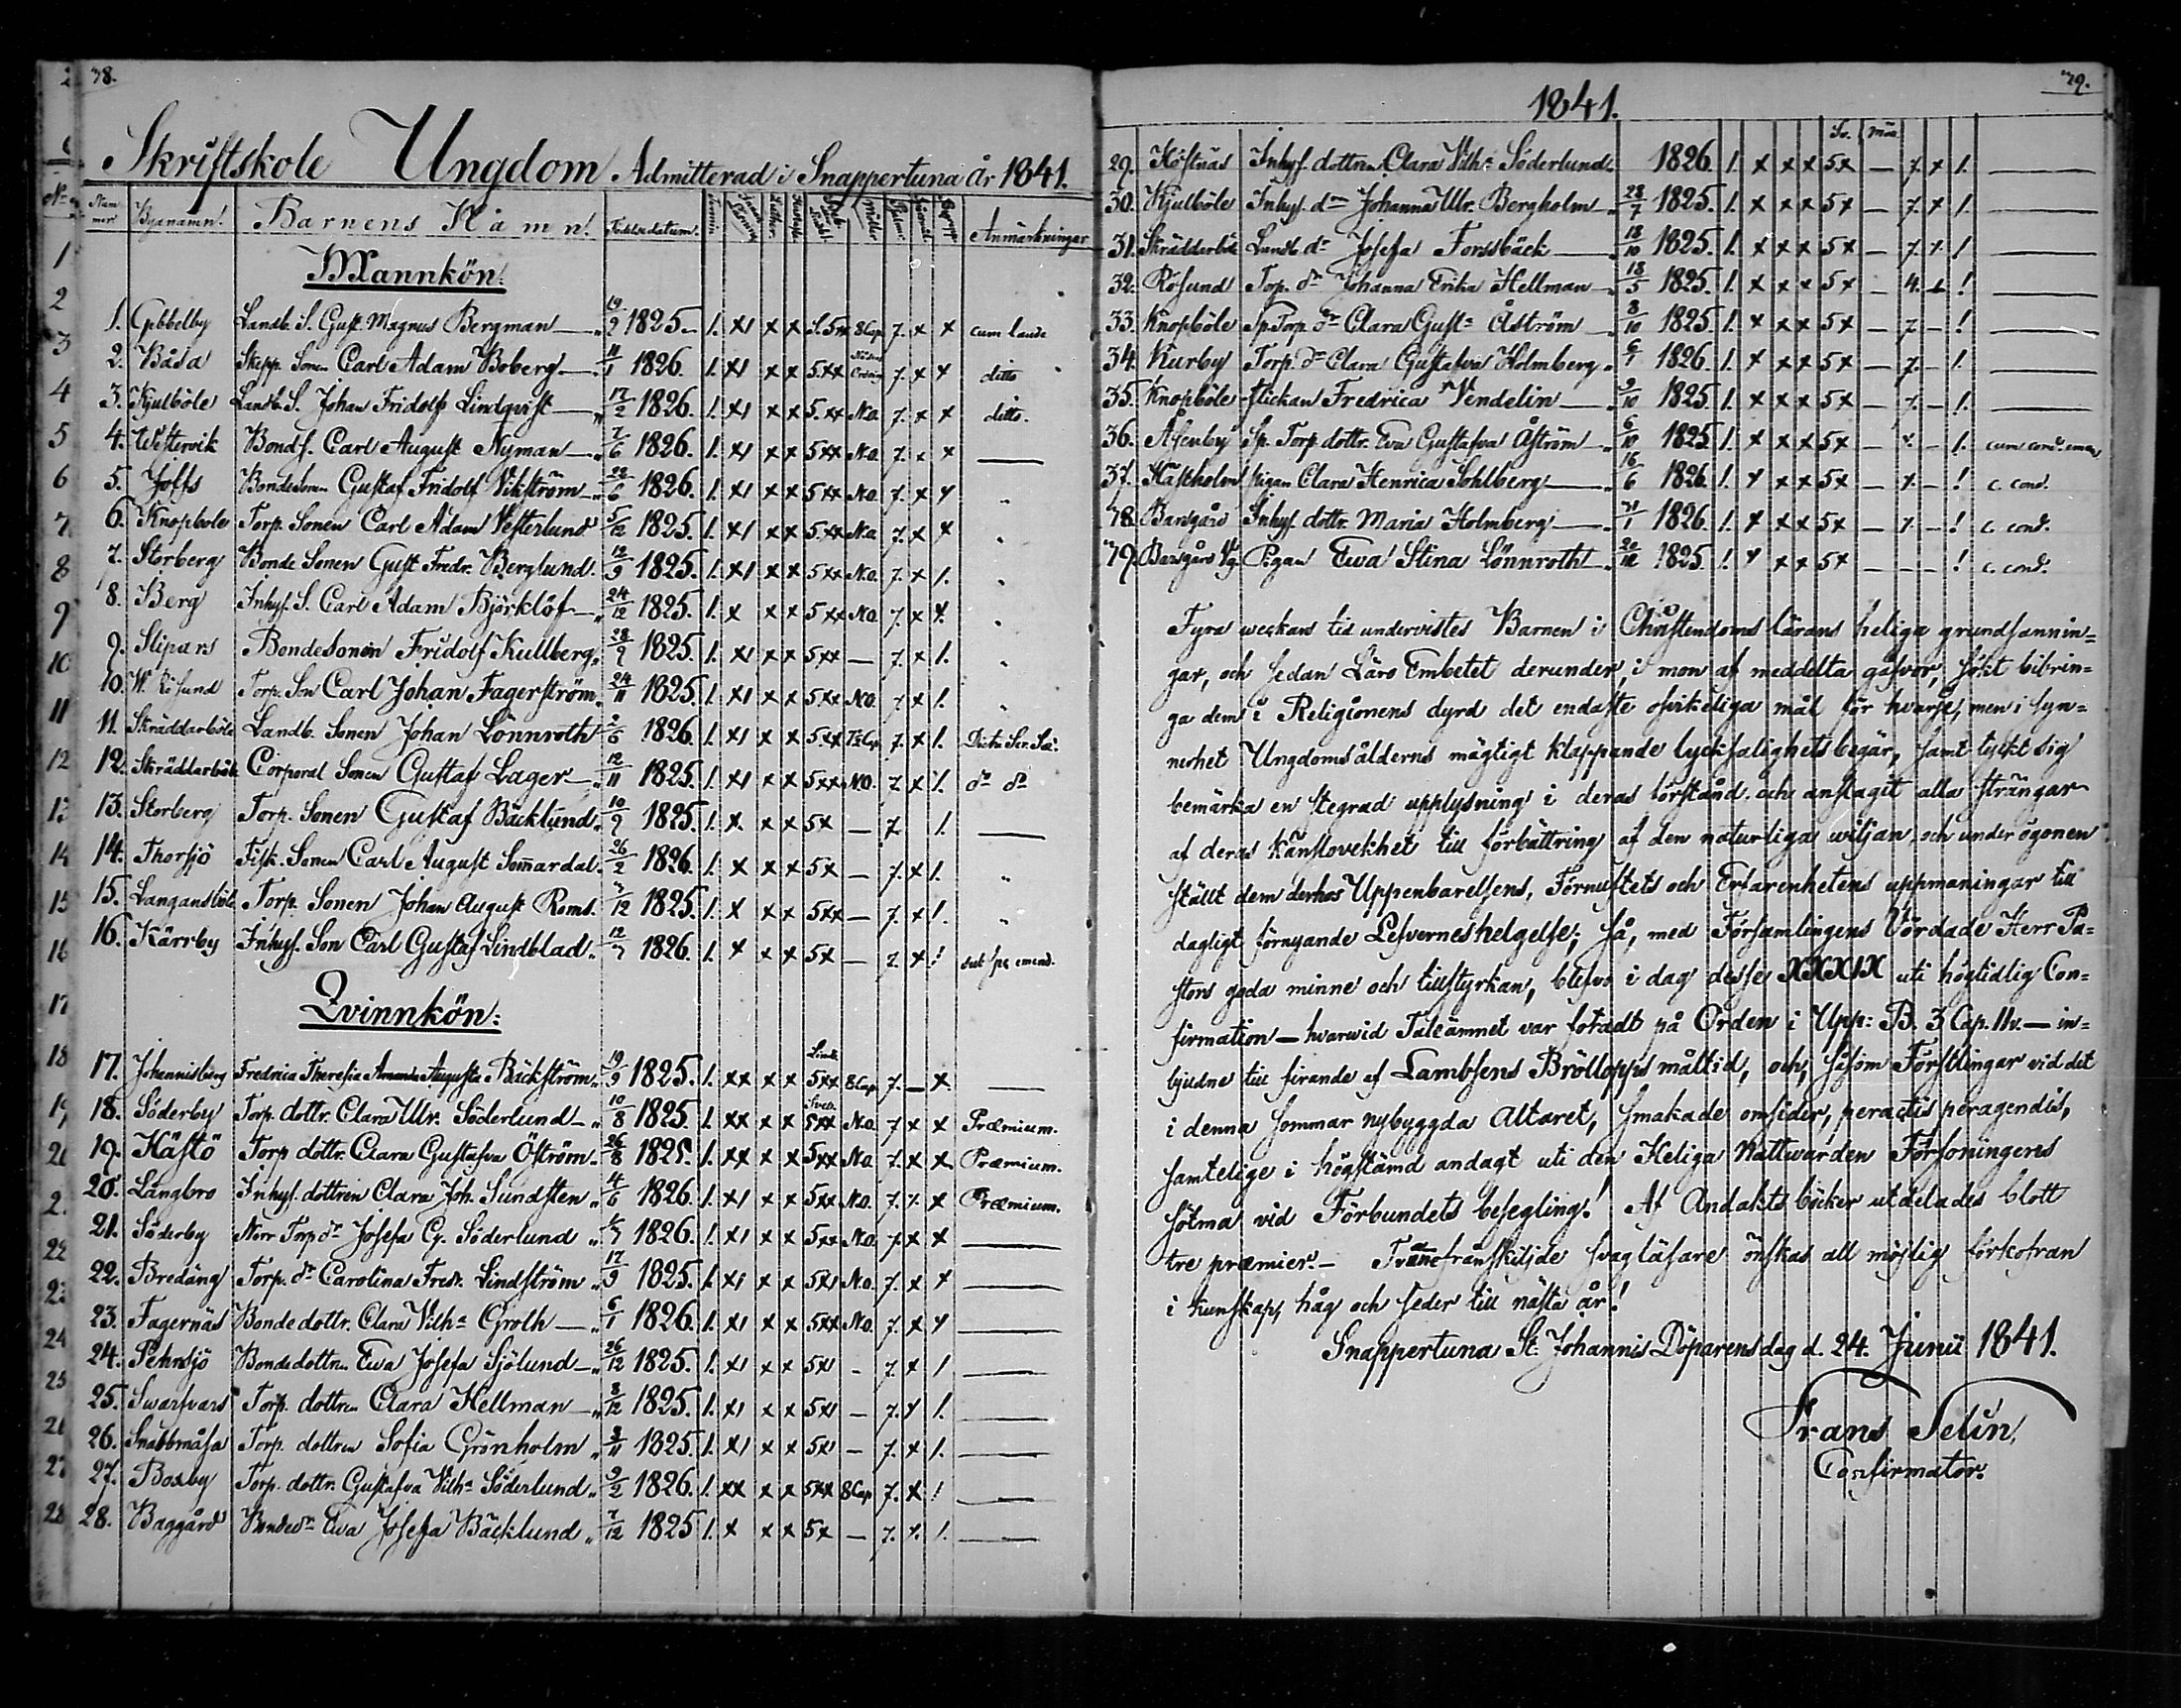 38.
Skriftskole Ungdom Admitterad i Snappertuna År 1841.
Num mer Byanamn. Barnens Namn. Födelsedatum. Anmärkningar
Mannkön:
1. Gebbelby Landb. S. Gust. Magnus Bergman 19/2 1825 1. x1 x x 5xx 8Cap 7. x x cum laude
2. Båsa Skepp. Sonen Carl Adam Boberg 11/1 1826. 1. x1 x x 5.xx 7. x x ditto
3. Kjulböle Landb. S. Johan Fridolf Lindqvist 17/2 1826. 1. x1 x x 5.xx N.O. 7. x x ditto.
4. Westervik Bonds. Carl August Nyman 7/6 1826. 1. x1 x x 5xx N.O. 7. x x —
5. Joffs Bondesonen Gustaf Fridolf Vikström 22/6 1826. 1. x1 x x 5xx N.O. 7. x x "
6. Knopböle Torp. Sonen Carl Adam Vesterlund 5/12 1825. 1. x1 x x 5.xx N.O. 7. x x "
7. Storberg Bonde Sonen Gust Fredr. Berglund. 12/9 1825. 1. x1 x x 5xx N.O. 7. x 1. "
8. Berg Inhys. S. Carl Adam Björklöf 24/12 1825. 1. x x x 5xx N.O. 7. x x. "
9. Slipars Bondesonen Fridolf Kullberg 28/9 1825. 1. x1 x x 5xx — 7. x 1. "
10. W. Rösund Torp. Son Carl Johan Fagerström 24/11 1825. 1. x1 x x 5xx N.O. 7 x 1. "
11. Skräddarböle Landb. Sonen Johan Lönnroth 2/6 1826. 1. x1 x x 5xx 7. x 1.
12. Skräddarböle Corporal Sonen Gustaf Lager 12/11 1825. 1. x1 x x 5xx N.O. 7 x 1. do do
13. Storberg Torp. Sonen Gustaf Bäcklund 10/9 1825. 1. x. x x 5x — 7 1. —
14. Thorsjö Fisk. Sonen Carl August Somardal 26/2 1826. 1. x x x 5x — 7. x 1. "
15. Langansböle Torp. Sonen Johan August Roms. 3/12 1825. 1. x x x 5xx — 7. x 1. "
16. Kärrby Inhys. Son Carl Gustaf Lindblad 12/3 1826. 1. x x x 5x — 7. x 1 sub spe emend.
Qvinnkön:
17. Johannisberg Fredrica Theresia Amanda Augusta Bäckström 19/9 1825. 1. xx x x 5xx 8Cap 7. — x —
18. Söderby Torp. dottr. Clara Ulr. Söderlund 10/8 1825. 1. xx x x 5xx N.o. 7 x x Præmium.
19. Hästö Torp dottr. Clara Gustafva Öström 26/8 1825. 1. xx x x 5xx N.o 7. x x Præmium.
20. Långbro Inhys. dottren Clara Joh. Sundsten 4/6 1826. 1. x1 x x 5xx N.o. 7. x x Præmium.
21. Söderby Norr Torp dr Josefa Söderlund 1826. 1. x1 x x 5xx N.o. 7. x x —
22. Bredäng Torp. dr Carolina Fredr. Lindström 17/9 1825. 1. x1 x x 5x1 N.o. 7. x x —
23. Fagernäs Bonde dottr. Clara Vilha Groth 6/1 1826. 1. x1 x x 5xx N.o. 7. x x —
24. Pehrsjö Bondedottren Ewa Josefa Sjölund 26/12 1825. 1. x1 x x 5x1 - 7. x 1 —
25. Swarfvars Torp. dottren Clara Hellman 8/12 1825. 1. x1 x x 5x1 — 7. x 1. —
26. Snabbmåsa Torp. dottren Sofia Grönholm 3/11 1825. 1. x1 x x 5x1 — 7. x 1. —
27. Boxby Torp. dottr. Gustafva Vilha Söderlund 9/2 1826. 1. xx x x 5xx 8Cap 7. x 1 —
28. Baggård Bondedr Ewa Josefa Bäcklund 7/12 1825 1. x x x 5x — 7. x. 1. —
39.
1841.
29. Höstnäs Inhys. dottren Clara Vilha Söderlund 1826. 1. x x x 5x — 7. x 1. —
30. Kjulböle Inhys. dr Johanna Ulr. Bergholm 28/7 1825. 1. x x x 5x — 7. x 1. —
31. Skräddarböle Landb. dr Josefa Forssbäck 18/10 1825. 1. x x x 5x — 7. x 1 —
32. Rösund Torp. dr Johanna Erika Hellman 18/5 1825. 1. x x x 5x — 4. x 1 —
33. Knopböle Sp. Torp. dr Clara Gusta Åström 8/10 1825. 1. x x x 5x — 7. — 1 —
34. Kurby Torp. dr Clara Gustafva Holmberg 1826. 1. x x x 5x — 7. — 1. —
35. Knopböle flickan Fredrica Vendelin 9/10 1825. 1. x x x 5x — 7. — 1. —
36. Åsenby Sp. Torp dottr. Eva Gustafva Åström 6/10 1825 1. x x x 5x — x — 1.
37. Hästholm Pigan Clara Henrica Sohlberg 16/6 1826. 1. x x x 5x — x — 1 c. cond.
38. Barsgård Inhys. dottr. Maria Holmberg 31/1 1826. 1. x x x 5x — x — 1 c. cond.
39. Barsgård Pigan Ewa Stina Lönnroth 1825. 1. x x x 5x — — — 1 c. cond.
Fyra weckars tid undervistes Barnen i Christendoms lärans heliga grundsannin=
gar, och sedan Läro Embetet derunder, i mon af meddelta gåfvor, sökt bibrin=
ga dem i Religionens dyrd det endaste osvikeliga mål för hvarje, men i syn=
nerhet Ungdomsålderns mägtigt klappande lycksalighetsbegär, samt tyckt sig
bemärka en stegrad upplysning i deras förstånd och anslagit alla strängar
af deras känslovekhet till förbättring af den naturliga wiljan, och under ögonen
ställt dem derhos Uppenbarelsens, Förnuftets och Erfarenhetens uppmaningar till
dagligt förnyande Lefverneshelgelse; så, med Församlingens Vördade Herr Pa=
stors goda minne och tillstyrkan, blefvo i dag desse XXXIX uti högtidlig Con=
firmation — hvarwid Talämnet var fotadt på Orden i Upp: B. 3 Cap. 11v. — in=
bjudne till firande af Lambsens Bröllopps måltid, och, såsom Förstlingar vid det
i denna sommar nybyggda Altaret, smakade omsider, peractis peragendis,
samtelige i högstämd andagt uti den Heliga Nattwarden Försoningens
sötma vid Förbundets besegling! Af Andaktsböcker utdelades blott
tre præmier. — frånskiljde svagläsare önskas all möjlig förkofran
i kunskap, håg och seder till nästa år!
Snappertuna St. Johannis Döparens dag d. 24. Junii 1841.
Frans Selin,
Confirmator.